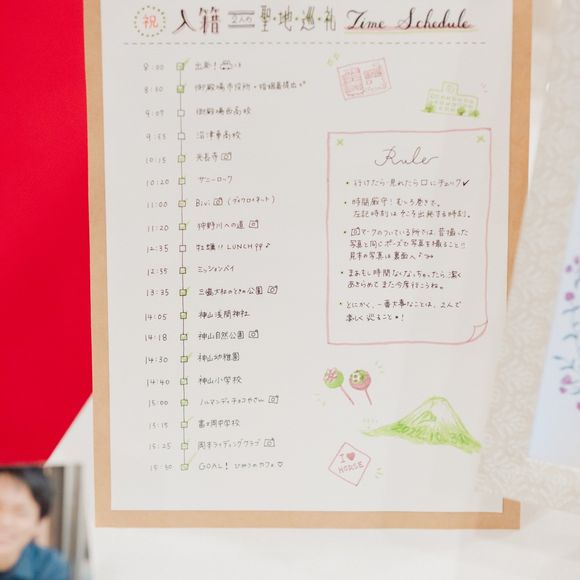 祝 入籍 2人の 聖・地・巡・礼 Time Schedule
8:00 出発!
8:30 御殿場市役所・婚姻届提出
9:07 御殿場西高校
9:55 沼津東高校
10:15 光長寺
10:20 サニーロック
11:00 Bivi (ディクロイネット)
11:20 狩野川への道
12:35 牡蠣!! LUNCH ♪
12:55 ミッションベイ
13:35 三嶋大社のときの公園
14:05 神山浅間神社
14:18 神山自然公園
14:30 神山幼稚園
14:40 神山小学校
15:00 ノルマンディチョコやさん
15:15 富士岡中学校
15:25 岡本ライディングクラブ
15:30 GOAL! ひみつのカフェ♡
Rule
・行けたら・見れたら□にチェック✓
・時間厳守!むしろ巻きで。
左記時刻はそこを出発する時刻。
・マークのついている所では、昔撮った
写真と同じポーズで写真を撮ること!!
見本の写真は裏面へ
・まぁもし時間なくなっちゃったら潔く
あきらめてまた今度行こうね。
・とにかく、一番大事なことは、2人で
楽しく巡ること!
I ♥
HORSE